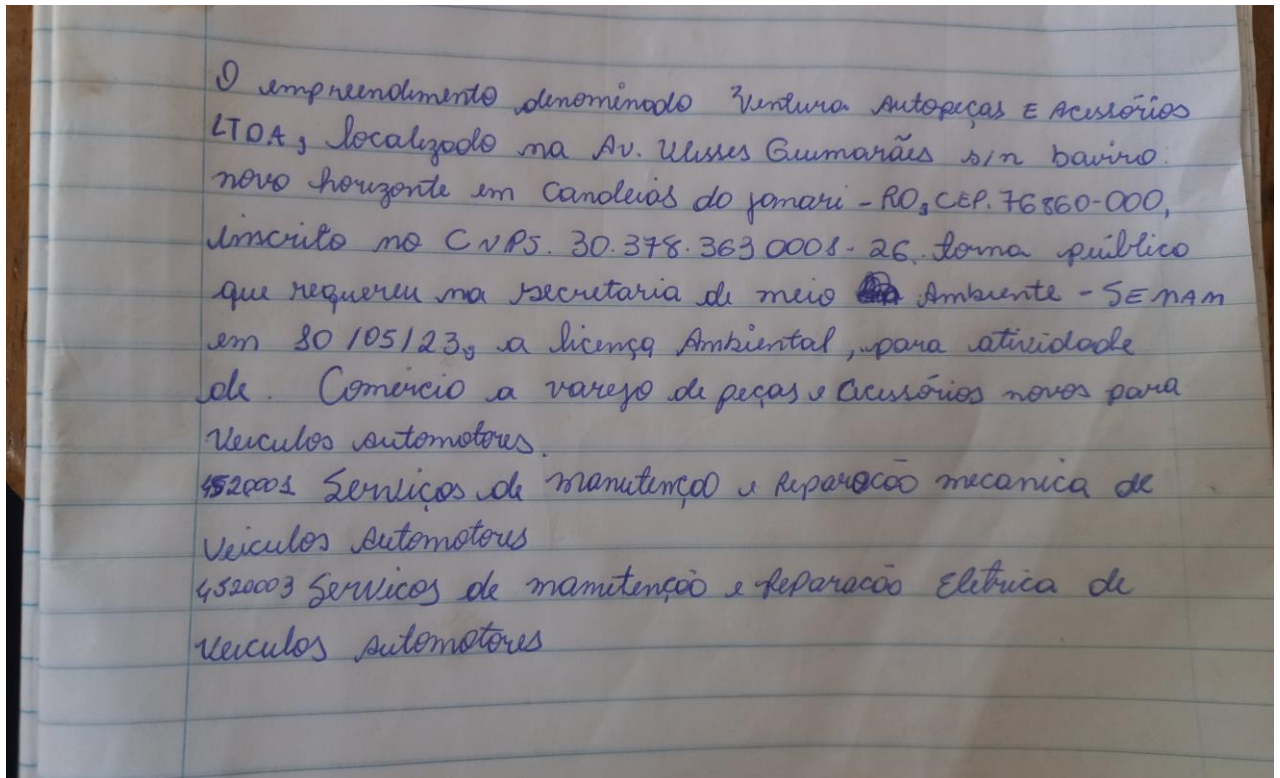 O empreendimento denominado Ventura Autopeças E Acessórios
LTDA, localizado na Av. Ulisses Guimarães s/n bairro.
novo horizonte em Candeias do jamari - RO, CEP. 76860-000,
inscrito no CNPJ. 30.378.363 0001-26. torna público
que requereu na secretaria de meio Ambiente - SEMAM
em 30/05/23, a licença Ambiental, para atividade
de. Comércio a varejo de peças e acessórios novos para
Veiculos automotores.
4520001 Serviços de manutenção e Reparacão mecanica de
Veiculos Automotores
4520003 Servicos de manutenção e Reparacão Eletrica de
Veiculos Automotores